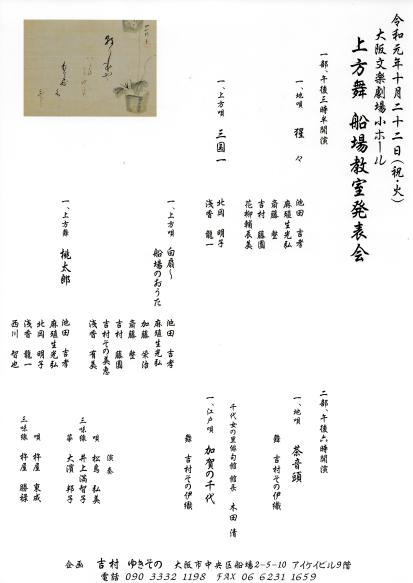 令和元年十月二十二日(祝・火)
大阪文楽劇場小ホール
上方舞 船場教室発表会
一部、午後三時半開演
一、地唄 猩々
池田 吉孝
麻殖生光弘
斎藤 整
吉村 藤園
花柳輔辰美
一、上方唄 三国一
北岡 明子
浅香 龍一
一、上方唄 白扇〜
船場のおうた
池田 吉孝
麻殖生光弘
加藤 栄治
斎藤 整
吉村 藤園
吉村その美恵
浅香 有美
一、上方舞 桃太郎
池田 吉孝
麻殖生光弘
北岡 明子
浅香 龍一
西川 智也
二部、午後六時開演
一、地唄 茶音頭
舞 吉村その伊織
千代女の里俳句館 館長 木田 清
一、江戸唄 加賀の千代
舞 吉村その伊織
演奏
唄 松島 弘美
三味線 井上満智子
箏 大濱 邦子
唄 杵屋 東成
三味線 杵屋 勝禄
企画 吉村 ゆきその 大阪市中央区船場2-5-10 アイケイビル9階
電話 090 3332 1198 FAX 06 6231 1659